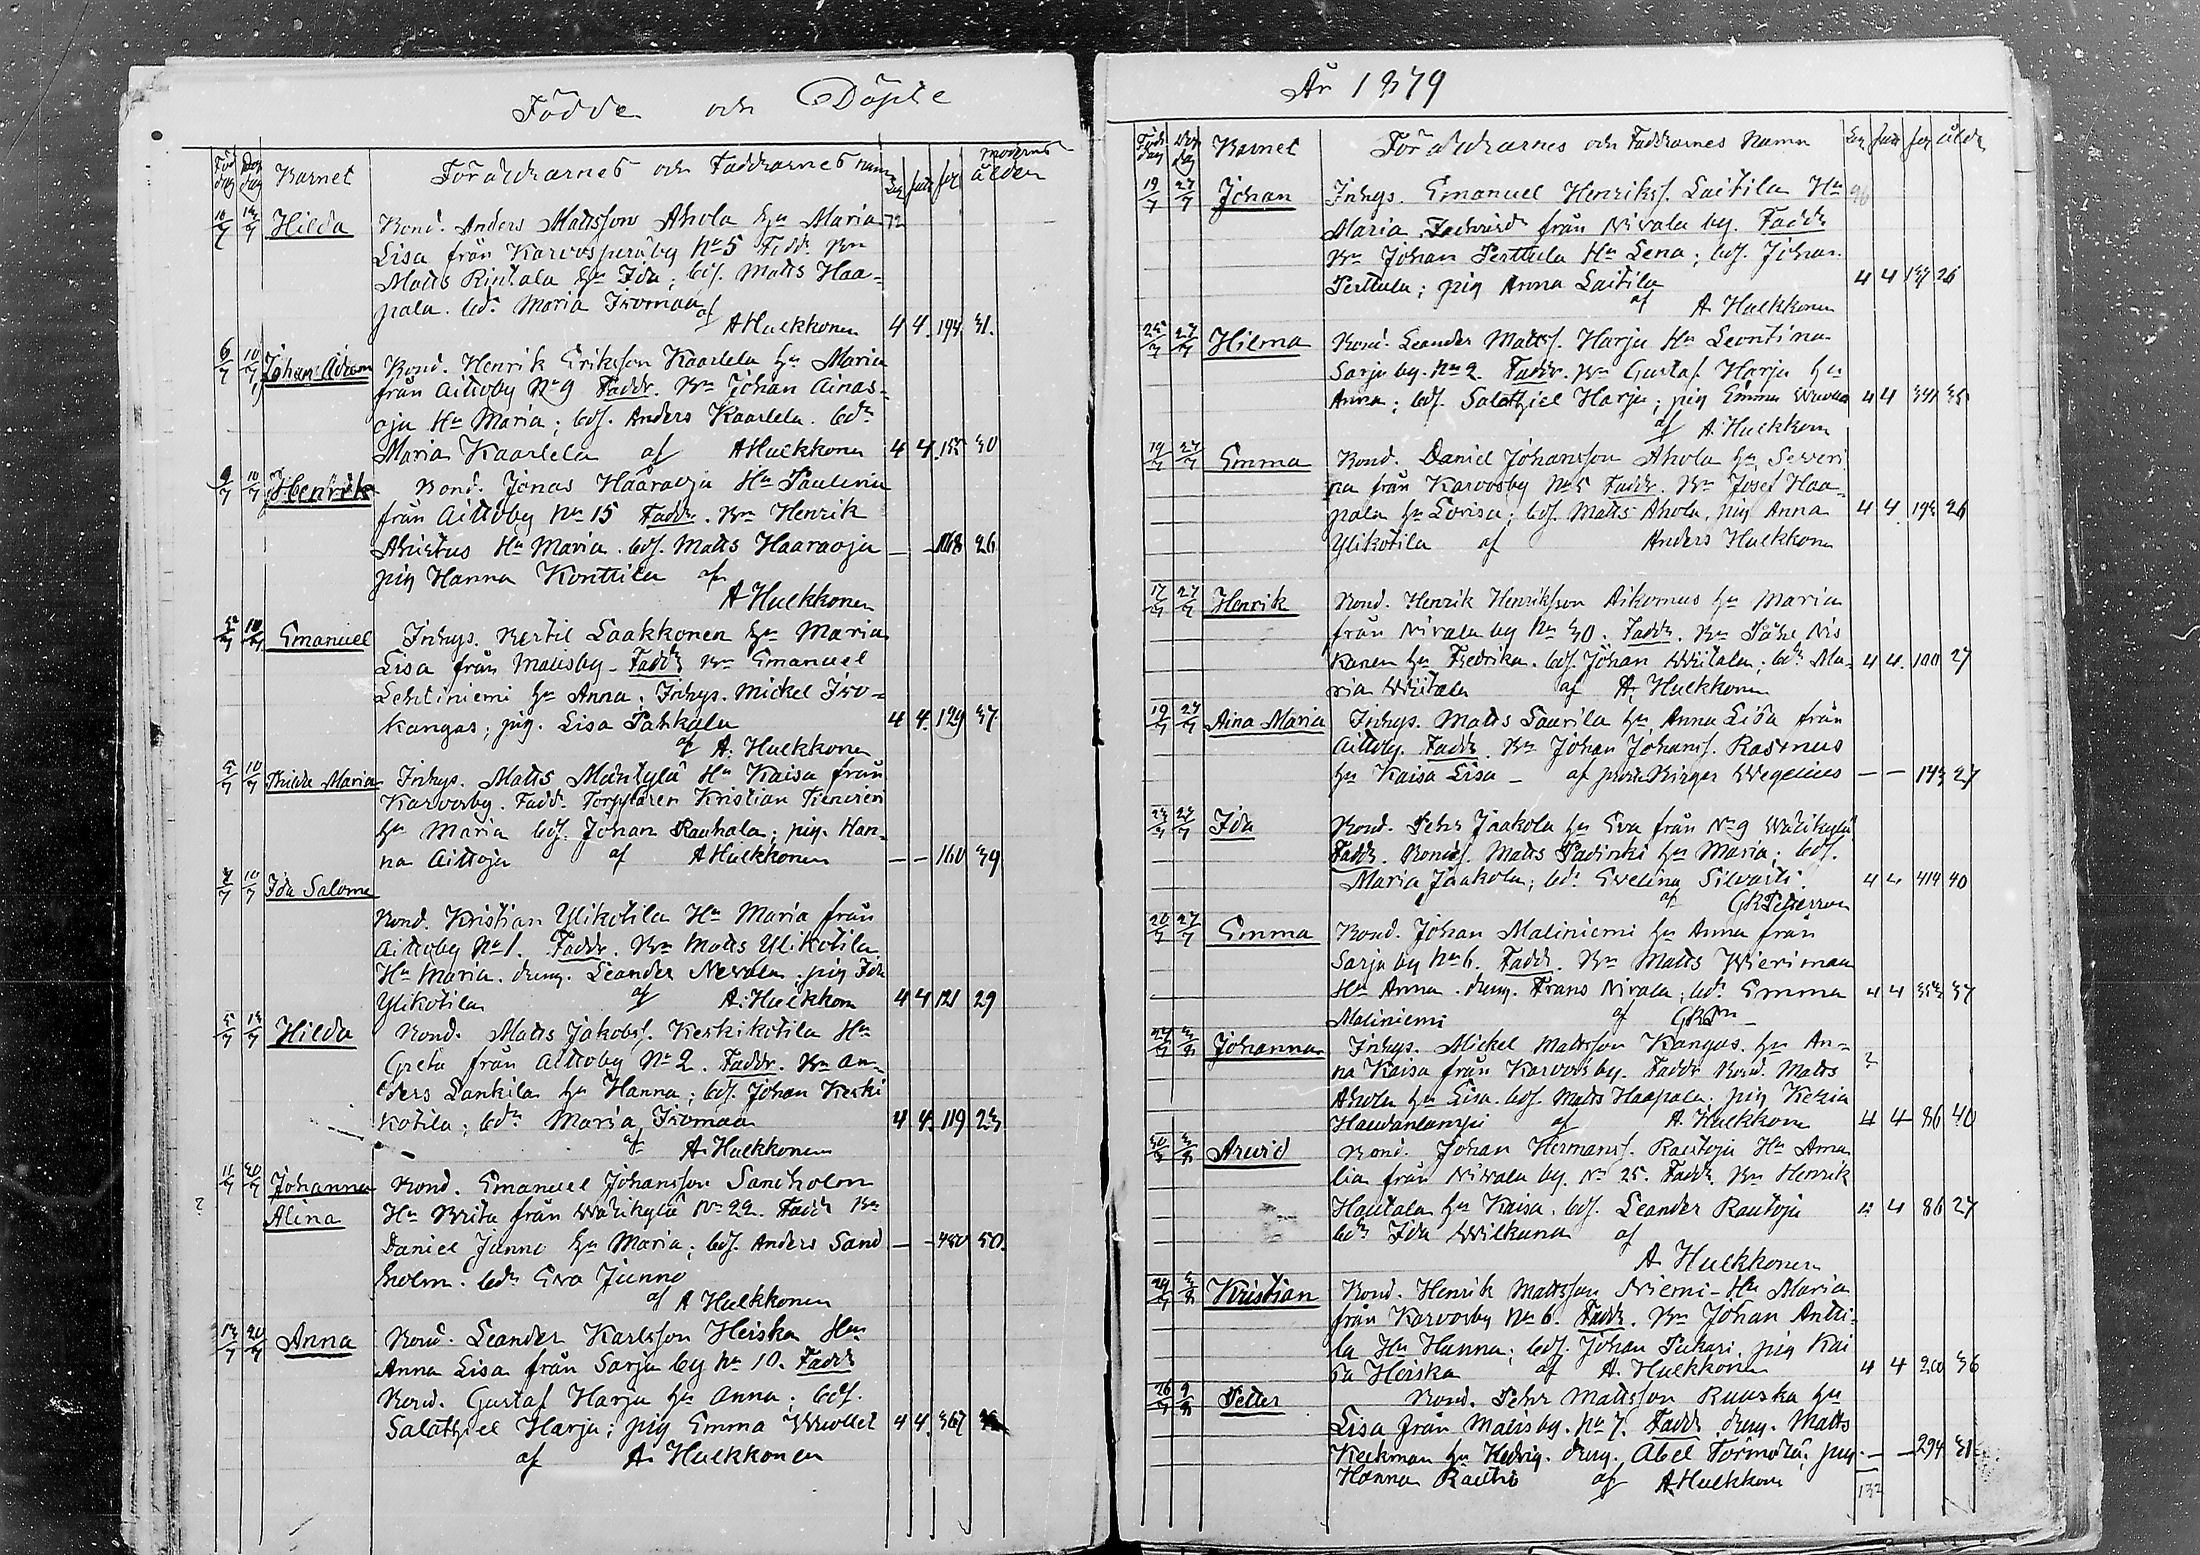 Födde och Döpte
Född dag Döp dag Barnet Föräldrarnes och Faddrarnes namn moderns ålder
10/7 13/7 Hilda Bond. Anders Mattsson Ahola Hu Maria
Lisa från Karvosperäby No 5 Fadd. Bn
Matts Rintala Hu Ida; bds. Matts Haa-
pala. bdr Maria Irvomaa
af A Hulkkonen 4 4 194 31.
6/7 10/7 Johan Adam Bond. Henrik Eriksson Kaarlela Hu Maria
från Aittoby No 9 Faddr. Bn Johan Ainas-
oja Hu Maria; bds. Anders Kaarlela. bdr
Maria Kaarlela af A Hulkkonen 4 4. 30
9/7 10/7 Henrik Bond. Jonas Haaraoja Hu Paulina
från Aittoby No 15 Faddr. Bn Henrik
Hu Maria. bds. Matts Haaraoja — — 168 26
pig Hanna Konttila af
A Hulkkonen
10/7 Emanuel Inhys. Bertil Laakkonen Hu Maria
Lisa från Malisby – Faddr Bn Emanuel
Lehtiniemi Hu Anna; Inhys. Mickel Iso-
kangas; pig. Lisa Pahkala 4 4. 129 37
af A. Hulkkonen
5/7 10/7 Maria Inhys. Matts Mäntylä Hu Kaisa från
Karvosby. Fadd. Torparen Kristian
Hu Maria bds. Johan Rauhala; pig. Han-
na Aittoja af A Hulkkonen — — 160 39
10/7 Ida Salome
Bond. Kristian Ylikotila Hu Maria från
Aittoby No 1. Faddr. Bn Matts Ylikotila
Hu Maria. dräng. Leander Nevala. pig Ida
Ylikotila af A. Hulkkonen 4 4 121 29
5/7 13/7 Hilda Bond. Matts Jakobss. Keskikotila Hu
Greta från Aittoby No 2. Faddr. Bn An-
ders Lankila Hu Hanna; bds. Johan Keski
kotila; bdr Maria Irvomaa 4 4. 119 23
af A. Hulkkonen
11/7 20/7 Johanna Bond. Emanuel Johansson Sandholm
? Alina Hu Brita från Mälikylä No 22. Faddr Bn
Daniel Junno Hu Maria; bds. Anders Sand — — 450 30.
holm. bdr Eva Junno
af A Hulkkonen
13/7 20/7 Anna Bond. Leander Karlsson Heiska Hu
Anna Lisa från Sarja by No 10. Faddr
Bond. Gustaf Harju Hu Anna; bds.
Salathiel Harju; pig Emma Wuollet 4 4. 367
af A. Hulkkonen
År 1879
Född dag Döp dag Barnet Föräldrarnes och Faddrarnes Namn ålder
19/7 27/7 Johan Inhys. Emanuel Henrikss. Laitila Hu 96
Maria från Nivala by. Faddr
Bn Johan Perttula Hu Lena; bds. Johan
Perttula; pig Anna Laitila 4 4 137 26
af A Hulkkonen
25/7 27/7 Hilma Bond. Leander Mattss. Harju Hu Leontina
Sarja by. No 2 Faddr. Bn Gustaf Harju Hu
Anna; bds. Salathiel Harju; pig Emma Wuollet 4 4 341 35
af A. Hulkkonen
19/7 27/7 Emma Bond. Daniel Johansson Ahola Hu Severi
na från Karvosby No 5 Faddr. Bn Josef Haa-
pala Hu Lovisa; bds. Matts Ahola, pig Anna 4 4. 193 26
Ylikotila af Anders Hulkkonen
17/7 27/7 Henrik Bond. Henrik Henriksson Hu Maria
från Nivala by No 30. Faddr. Bn Nis
kanen Hu Fredrika. bds. Johan Wiitala. bdr Ma- 4 4. 100 27
ria Wiitala af A. Hulkkonen
19/7 27/7 Aina Maria Inhys. Matts Saarila Hu Anna Lisa från
Aittoby. Faddr. Bn Johan Johanss. Rasmus
Hu Kaisa Lisa – af Birger Wegelius — — 143 27
23/7 27/7 Ida Bond. Pehr Jaakola Hu Eva från No 9 Mälikylä
Faddr. Matts Padinki Hu Maria; bds.
Maria Jaakola; bdr Evelina Silvasti. 4 4 414 40
af GR
20/7 27/7 Emma Bond. Johan Maliniemi Hu Anna från
Sarja by No 6. Faddr. Bn Matts Wierimaa
Hu Anna. dräng. Frans Nivala; bdr Emma 4 4 353 37
Maliniemi af
3/8 Johanna Inhys. Mickel Mattsson Kangas. Hu An- ?
na Kaisa från Karvosby. Faddr Bond. Matts
Ahola Hu Lisa. bds. Matts Haapala. pig
af A. Hulkkonen 4 4 86 40
30/7 3/8 Arvid Bond. Johan Hermanss. Rautoja Hu Ama
lia från Nivala by. No 25. Faddr. Bn Henrik
Hautala Hu Kaisa. bds. Leander Rautoja 4 4 86 27
bdr Ida Wilkuna af
A Hulkkonen
29/7 3/8 Kristian Bond. Henrik Mattsson Niemi – Hu Maria
från Karvosby No 6. Faddr. Bn Johan Antti-
la Hu Hanna; bds. Johan Pukari, pig Kai
sa Heiska af A. Hulkkonen 4 4 200 36
26/7 9/8 Petter Bond. Pehr Mattsson Ruuska Hu
Lisa från Malisby. No 7. Faddr dräng. Matts
Keckman Hu Hedvig. dräng. Abel Törmälä; pig — — 294 31
Hanna Rautio af A Hulkkonen
132